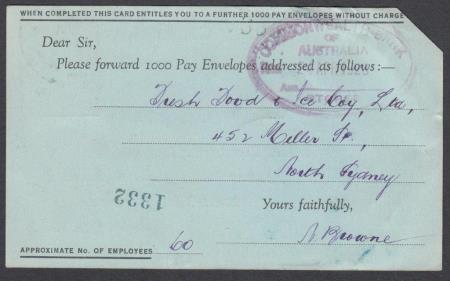 WHEN COMPLETED THIS CARD ENTITLES YOU TO A FURTHER 1000 PAY ENVELOPES WITHOUT CHARGE
OF
AUSTRALIA
Dear Sir,
Please forward 1000 Pay Envelopes addressed as follows :—
Fresh Food & Ice Coy, Ltd,
452 Miller St,
North Sydney
1332
Yours faithfully,
A Browne
APPROXIMATE No. OF EMPLOYEES 60